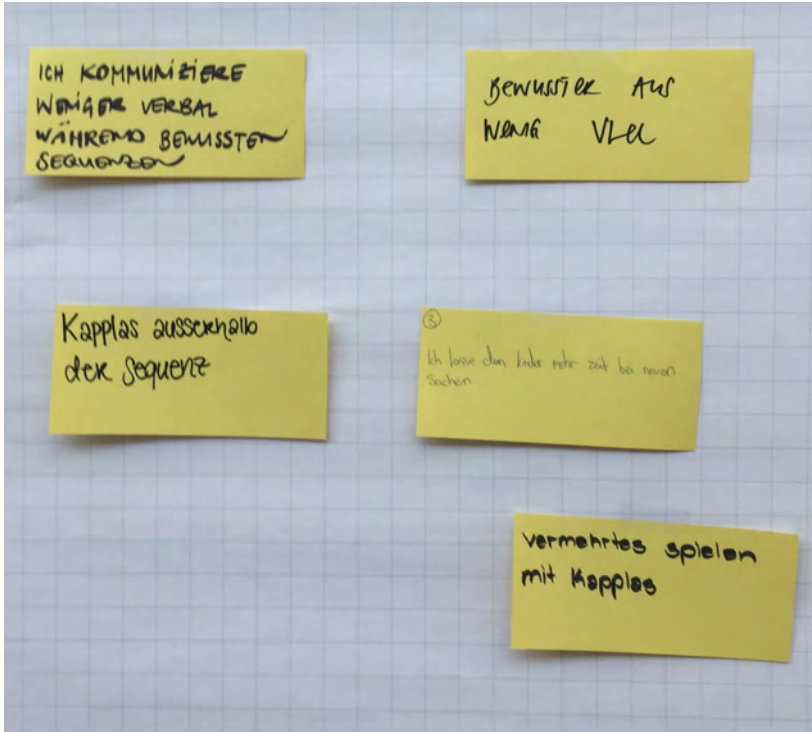 ICH KOMMUNIZIERE
WENIGER VERBAL
WÄHREND BEWUSSTEN
SEQUENZEN
BEWUSSTER AUS
WENIG VIEL
Kapplas ausserhalb
der Sequenz
3
Ich lasse den kinder mehr zeit bei neuen
Sachen
vermehrtes spielen
mit Kapplas